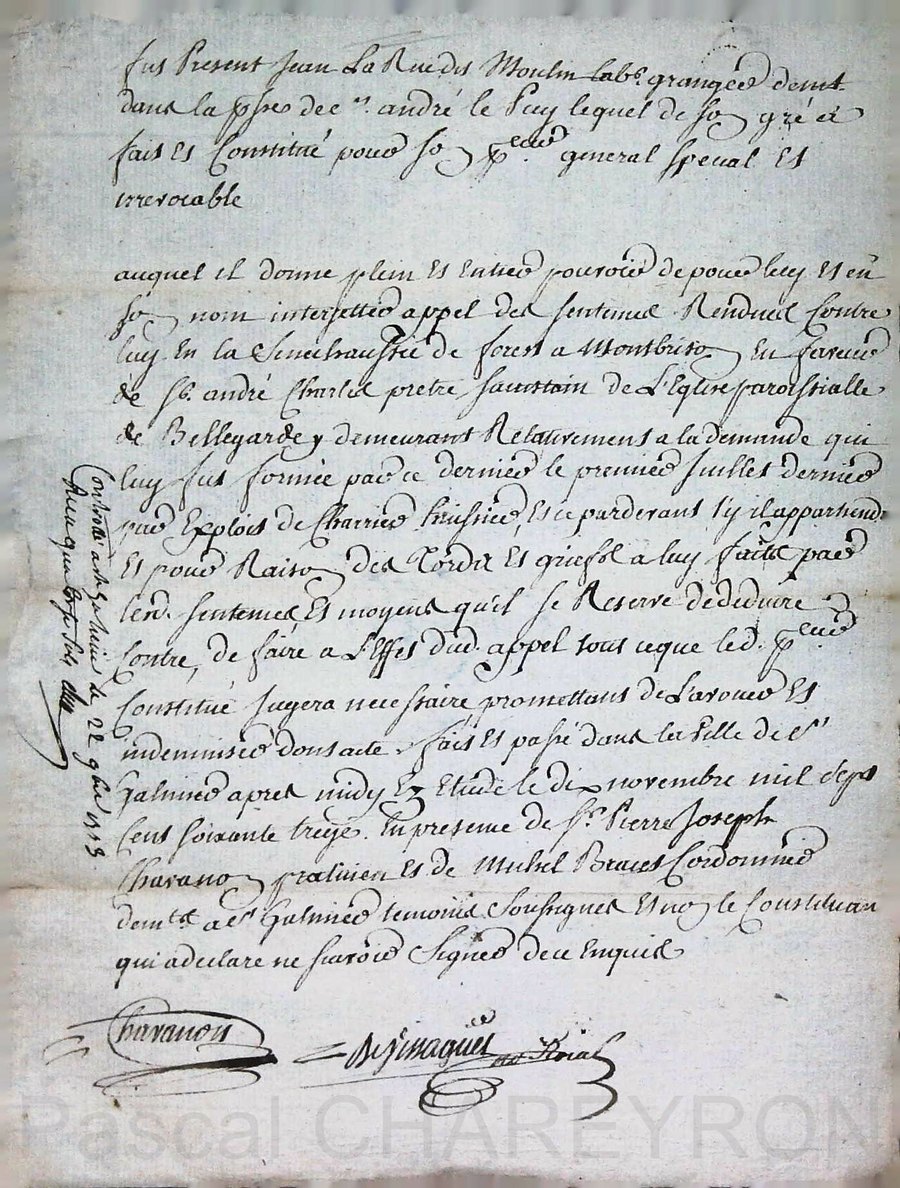 fut Present Jean La Rue dit Moulin lab.r granger demt.
dans la psse de St. andré le Puy lequel de son gré a
fait et Constitué pour son pcureur general special et
irrevocable
auquel il donne plein et entier pouvoir de pour luy et en
son nom interjetter appel des sentences Rendues Contre
luy En la Senechaussée de forest a Montbrison En faveur
de Sr. andré Charles pretre sacristain de L'Eglise paroissialle
de Bellegarde y demeurant Relativement a la demande qui
luy fut formée par ce dernier le premier Juillet dernier
par Exploit de Charrier huissier, et ce pardevant qui il appartiendr
Et pour Raison des tords et griefs a luy faits par
les sentences et moyens qu'il se Reserve de deduire
Contre, de faire a L'Effet dud. appel tout ce que led. pcureur
Constitué Jugera necessaire promettant de L'avouer et
indemniser dont acte fait et passé dans la Ville de St
Galmier apres midy En Etude le dix novembre mil sept
Cent soixante treize. En presence de Sr. Pierre Joseph
Chavanon praticien et de Michel Cordonnier
demts. a St. Galmier temoins soussignes et non le Constituan
qui a declaré ne scavoir signer de ce Enquis
Controllé a St Galmier le 22 9bre 1773
Reçu quatorze sols
Chavanon
not Roial
Pascal CHAREYRON